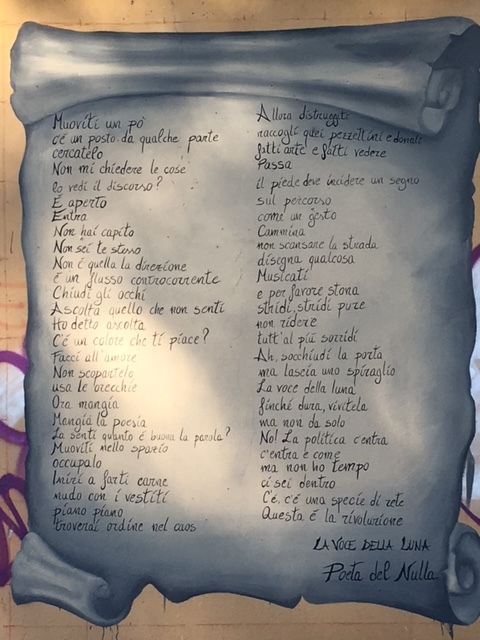 Muoviti un pò
c'é un posto da qualche parte
cercatelo
Non mi chiedere le cose
lo vedi il discorso?
É aperto
Entra
Non hai capito
Non sei te stesso
Non é quella la direzione
é un flusso controcorrente
Chiudi gli occhi
Ascolta quello che non senti
Ho detto ascolta
C'é un colore che ti piace?
Facci all'amore
Non scopartelo
usa le orecchie
Ora mangia
Mangia la poesia
La senti quanto é buona la parola?
Muoviti nello spazio
occupalo
Inizi a farti carne
nudo con i vestiti
piano piano
troverai ordine nel caos
Allora distruggilo
raccogli quei pezzettini e donali
fatti arte e fatti vedere
Passa
il piede deve incidere un segno
sul percorso
come un gesto
Cammina
non scansare la strada
disegna qualcosa
Musicati
e per favore stona
stridi, stridi pure
non ridere
tutt'al piú sorridi
Ah, socchiudi la porta
ma lascia uno spiraglio
La voce della luna
finché dura, vivitela
ma non da solo
No! La politica c'entra
c'entra e come
ma non ho tempo
ci sei dentro
C'é, c'é una specie di rete
Questa é la rivoluzione
LA VOCE DELLA LUNA
Poeta del Nulla